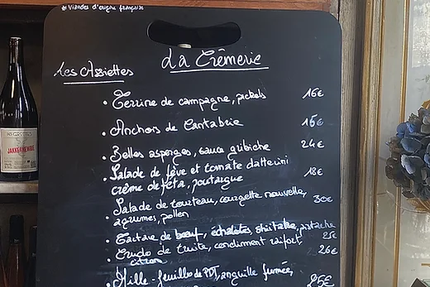 * Viandes d'origine française
La Crèmerie
Les Assiettes
. Terrine de campagne, pickels 16€
. Anchois de Cantabrie 15€
. Belles asperges, sauce gribiche 24€
. Salade de fève et tomate datterini
crème de féta, poutargue 18€
. Salade de tourteau, courgette nouvelle,
agrumes, pollen 30€
. Tartare de bœuf, échalotes, shiitake, pistache 25€
. Crudo de truite, condiment raifort
citron 26€
. Mille-feuille de PDT, anguille fumée, 25€